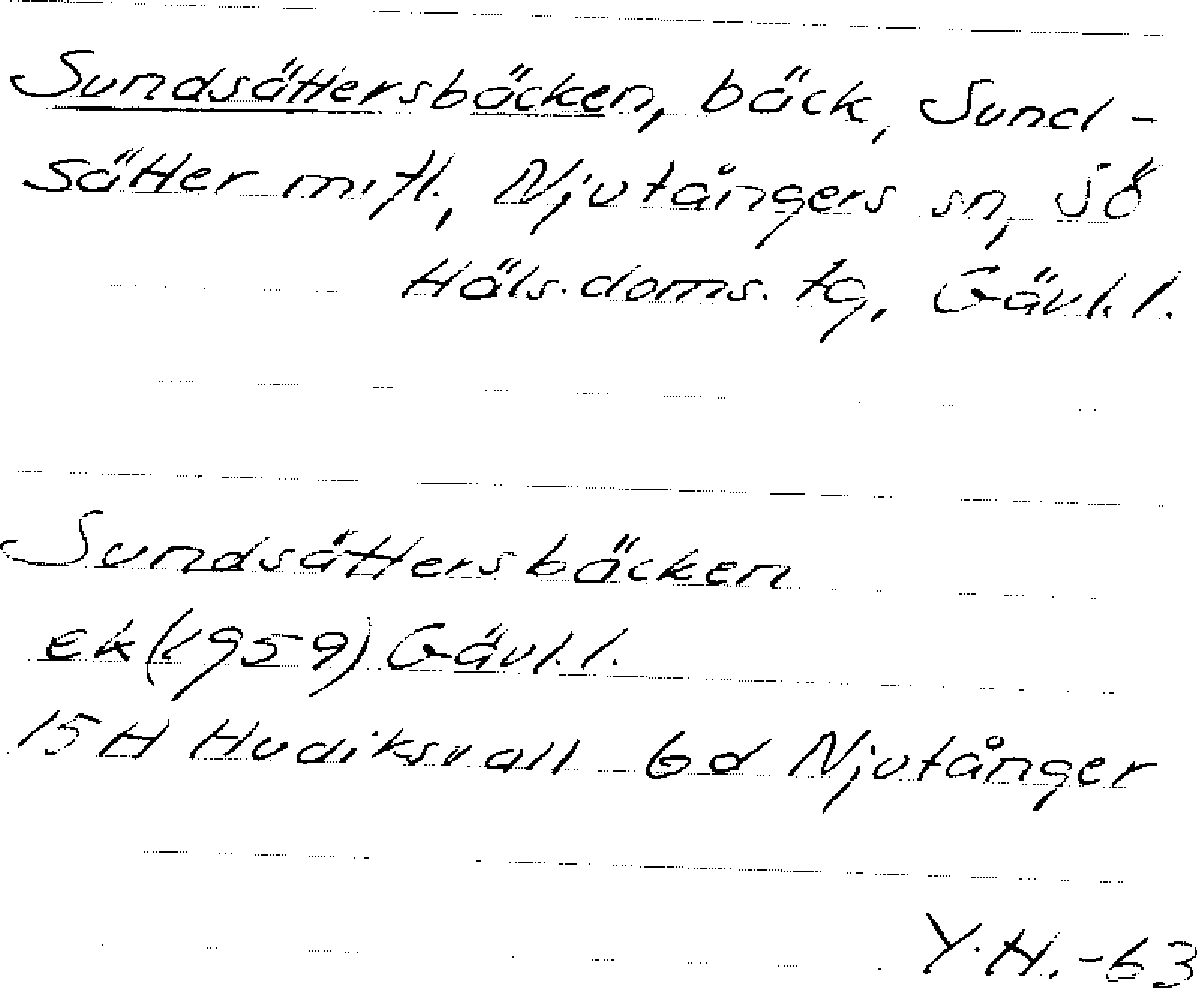 Sundsättersbäcken, bäck, Sund-
sätter m.fl., Njutångers sn, Sö
Häls. doms. tg, Gävl. l.
Sundsättersbäcken
ek (1959) Gävl. l.
15 H Hudiksvall 6d Njutånger
Y.H. -63